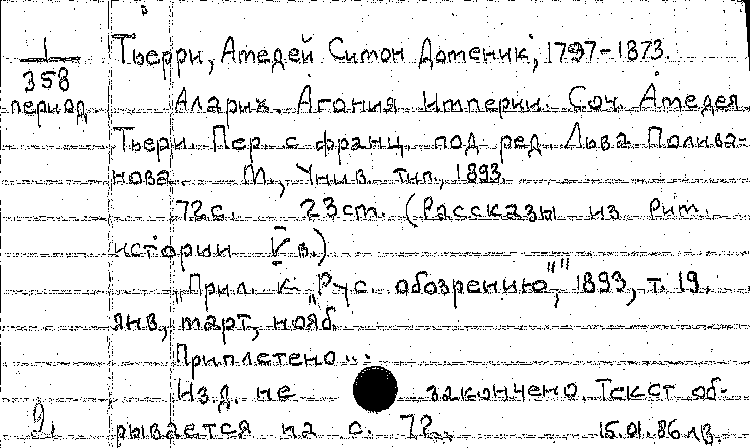 1 Тьерри, Амедей Симон Доменик, 1797-1873.
358
период Аларих. Агония Империи. Соч. Амедея
Тьери. Пер. с франц. под ред. Льва Полива-
нова. М., Унив. тип., 1893.
72 с. 23 cm. (Рассказы из рим.
истории V в.)
"Прил. к "Рус. обозрению"", 1893, т. 19.
янв, март, нояб.
Приплетено...
Изд. не закончено. Текст об-
рывается на с. 72. 15.01.86 лв.